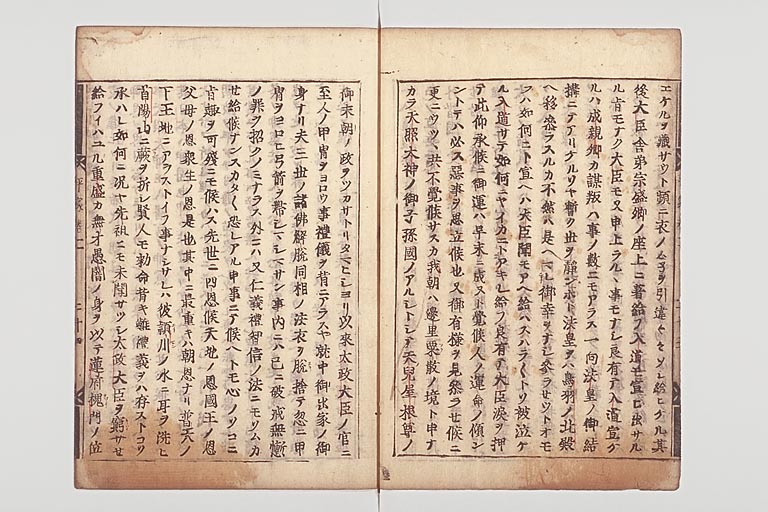 エケルヲ蔵サウト頻ニ衣ノムネヲ引違ヘ〳〵ソシ給ヒケル其
後大臣舎弟宗盛卿ノ座上ニ著給フ入道モ宣ヒ出サル
ル肯モナク大臣モ又申上ラルヽ事モナシ良有テ入道宣ケ
ルハ成親卿カ謀叛ハ事ノ數ニモアラス一向法皇ノ御結
構ニテアリケルソヤ暫ク世ヲ靜ンホト法皇ヲハ鳥羽ノ北殿
ヘ移奉ラスルカ不然ハ是ヘマレ御幸ヲナシ参ラセウトオモ
フハ如何ニト宣ヘハ大臣聞モアヘ給ハスハラ〳〵トソ被泣ケ
ル入道サテ如何ニヤイカニトアキレ給フ良有テ大臣涙ヲ押
テ此仰承候ニ御運ハ早末ニ成ヌト覺候人ノ運命ノ傾ン
ントテハ必ス惡事ヲ思立候也又御有様ヲ見奉ラセ候ニ
更ニウツヽ共不覺候サスカ我朝ハ邊里粟散ノ境ト申ナ
カラ天照大神ノ御子孫國ノアルシトシテ天兒屋根尊ノ
御末朝ノ政ヲツカサトリタマヒシヨリ以來太政大臣ノ官ニ
至人ノ甲冑ヲヨロウ事禮儀ヲ背ニアラスヤ就中御出家ノ御
身ナリ夫三世ノ諸佛解脱同相ノ法衣ヲ脱捨テ忽ニ甲
冑ヲヨロヒ弓箭ヲ帶シマシマサン事内ニハ已ニ破戒無慚
ノ罪ヲ招クノミナラス外ニハ又仁義禮智信ノ法ニモソムカ
セ給候ナンスカタ〳〵恐レアル申事ニテ候ヘトモ心ノソコニ
肯趣ヲ可殘ニモ候ハス先世ニ四恩候天地ノ恩國王ノ恩
父母ノ恩衆生ノ恩是也其中ニ最重キハ朝恩ナリ普天ノ
下王地ニアラストイフ事ナシサレハ彼頴川ノ水ニ耳ヲ洗ヒ
首陽山ニ蕨ヲ折シ賢人モ勅命背キ難禮義ヲハ存ストコソ
承ハレ如何ニ况ヤ先祖ニモ未聞サツシ太政大臣ヲ窮サセ
給フイハユル重盛カ無才愚闇ノ身ヲ以テ蓮府槐門ノ位